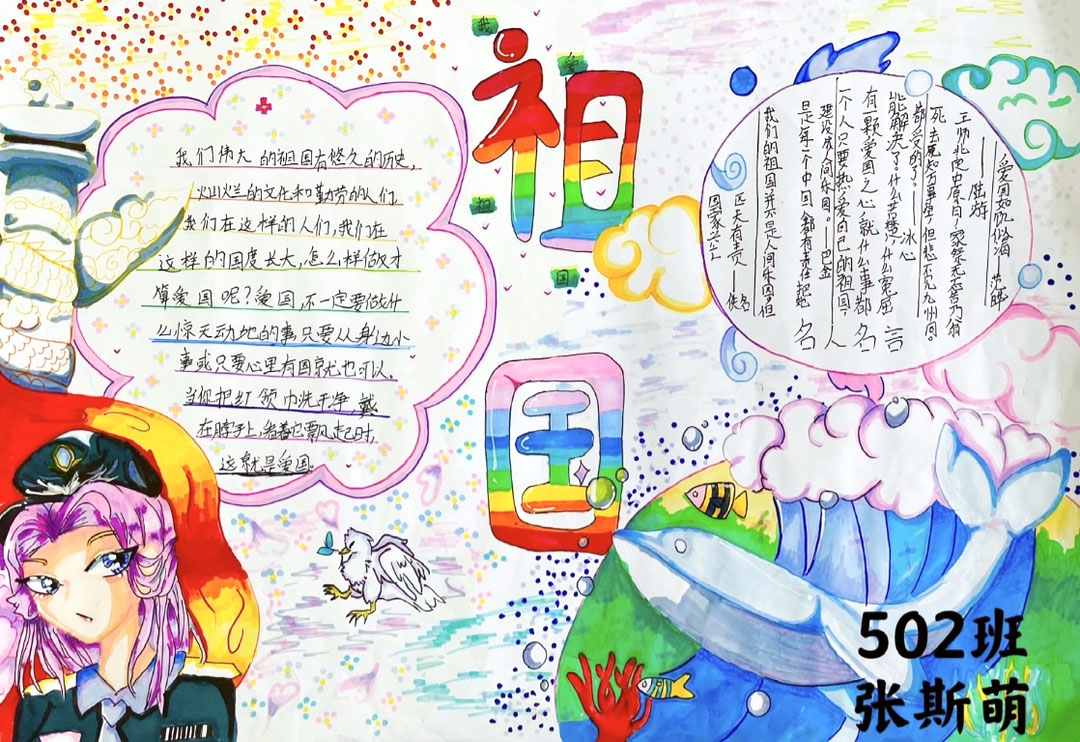 我爱祖国
祖国
我们伟大的祖国有悠久的历史,
灿烂的文化和勤劳的人们。
我们在这样的人们,我们在
这样的国度长大,怎么样做才
算爱国呢?爱国,不一定要做什
么惊天动地的事只要从身边小
事或只要心里有国家就也可以,
当你把红领巾洗干净,戴
在脖子上,看着它飘风起时,
这就是爱国。
爱国如饥似渴
陆游
王师北定中原日,家祭无忘告乃翁
死去元知万事空,但悲不见九州同。
都受的了。——冰心
能解决了什么苦楚,什么冤屈
有一颗爱国之心就什么事都
名言
一个人只要热爱自己的祖国,
名人
建设成人间乐园。——巴金
是每一个中国人都有责任把她
我们的祖国并不是人间乐园,但
匹夫有责——佚名
国家兴亡
502班
张斯萌